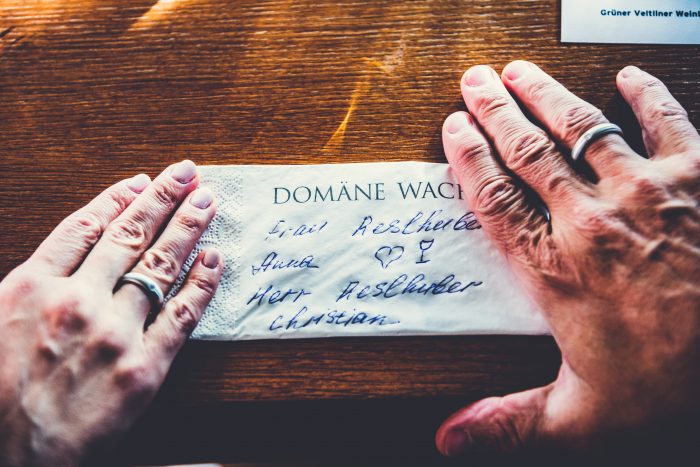 Grüner Veltliner Wein
DOMÄNE WACH
Frau Aeslhuber
Anna
Herr Aeslhuber
Christian.